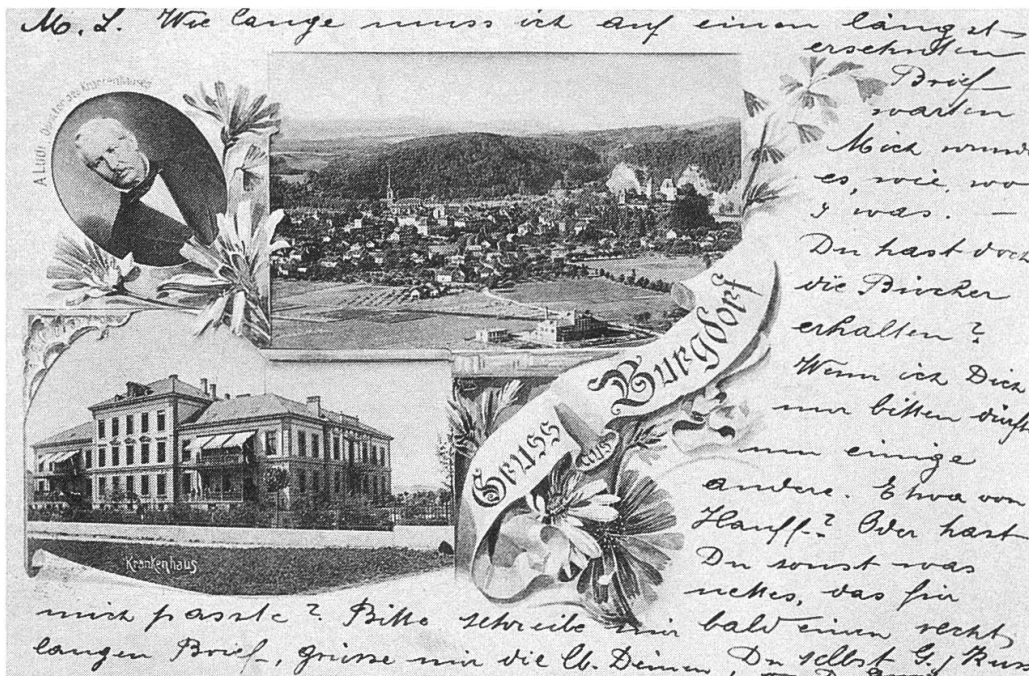 M. L. Wie lange muss ich auf einen längst
ersehnten
Brief
warten
Mich wund
es, wie, wo
& was. —
Du hast doch
die Bücher
erhalten?
Wenn ich Dich
nur bitten dürft
um einige
andere. Etwa von
Hauff? Oder hast
Du sonst was
nettes, das für
mich passte? Bitte schreibe mir bald einen recht
langen Brief, grüsse mir die lb. Deinen, Du selbst G. & Kuss
Gruss
aus
Burgdorf
Krankenhaus